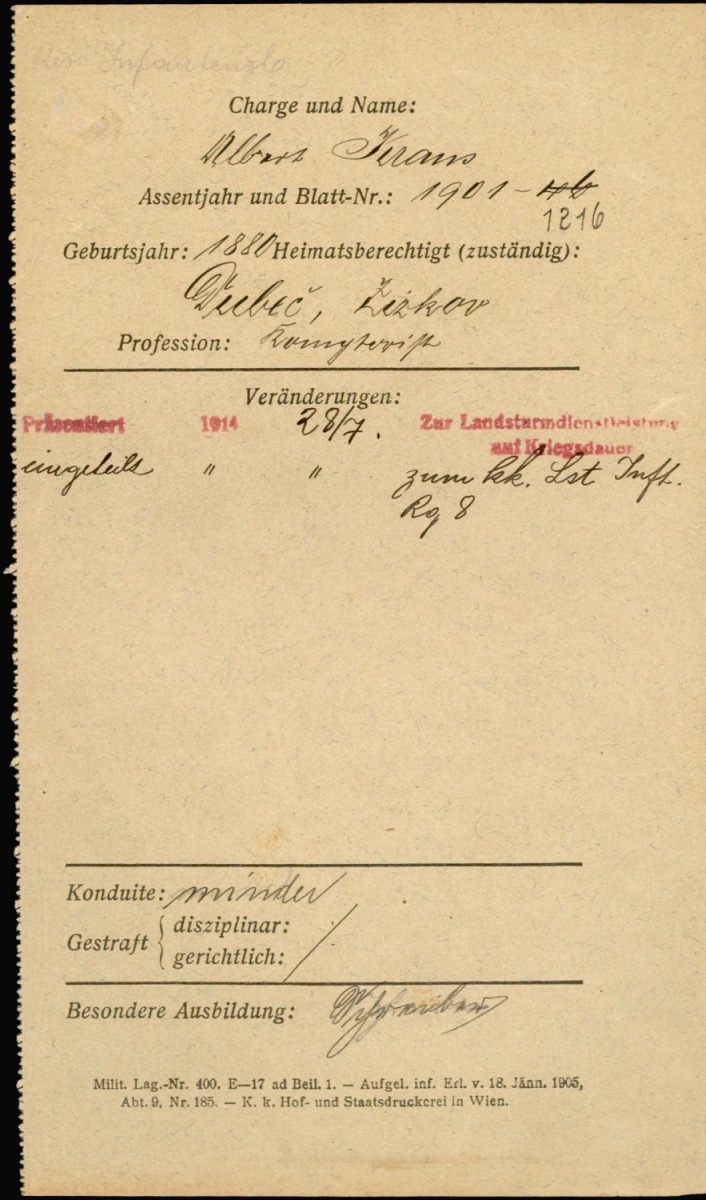 Charge und Name:
Albert Kraus
Assentjahr und Blatt-Nr.: 1901 - 46
1216
Geburtsjahr: 1880 Heimatsberechtigt (zuständig):
Dubeč, Žižkov
Profession: Komptorist
Veränderungen:
Präsentiert 1914 28/7. Zur Landsturmdienstleistung
auf Kriegsdauer
eingeteilt " " zum kk. Lst Inft.
Rg 8
Konduite: minder
Gestraft { disziplinar:
gerichtlich:
Besondere Ausbildung: Schreiber
Milit. Lag.-Nr. 400. E—17 ad Beil. 1. — Aufgel. inf. Erl. v. 18. Jänn. 1905,
Abt. 9, Nr. 185. — K. k. Hof- und Staatsdruckerei in Wien.